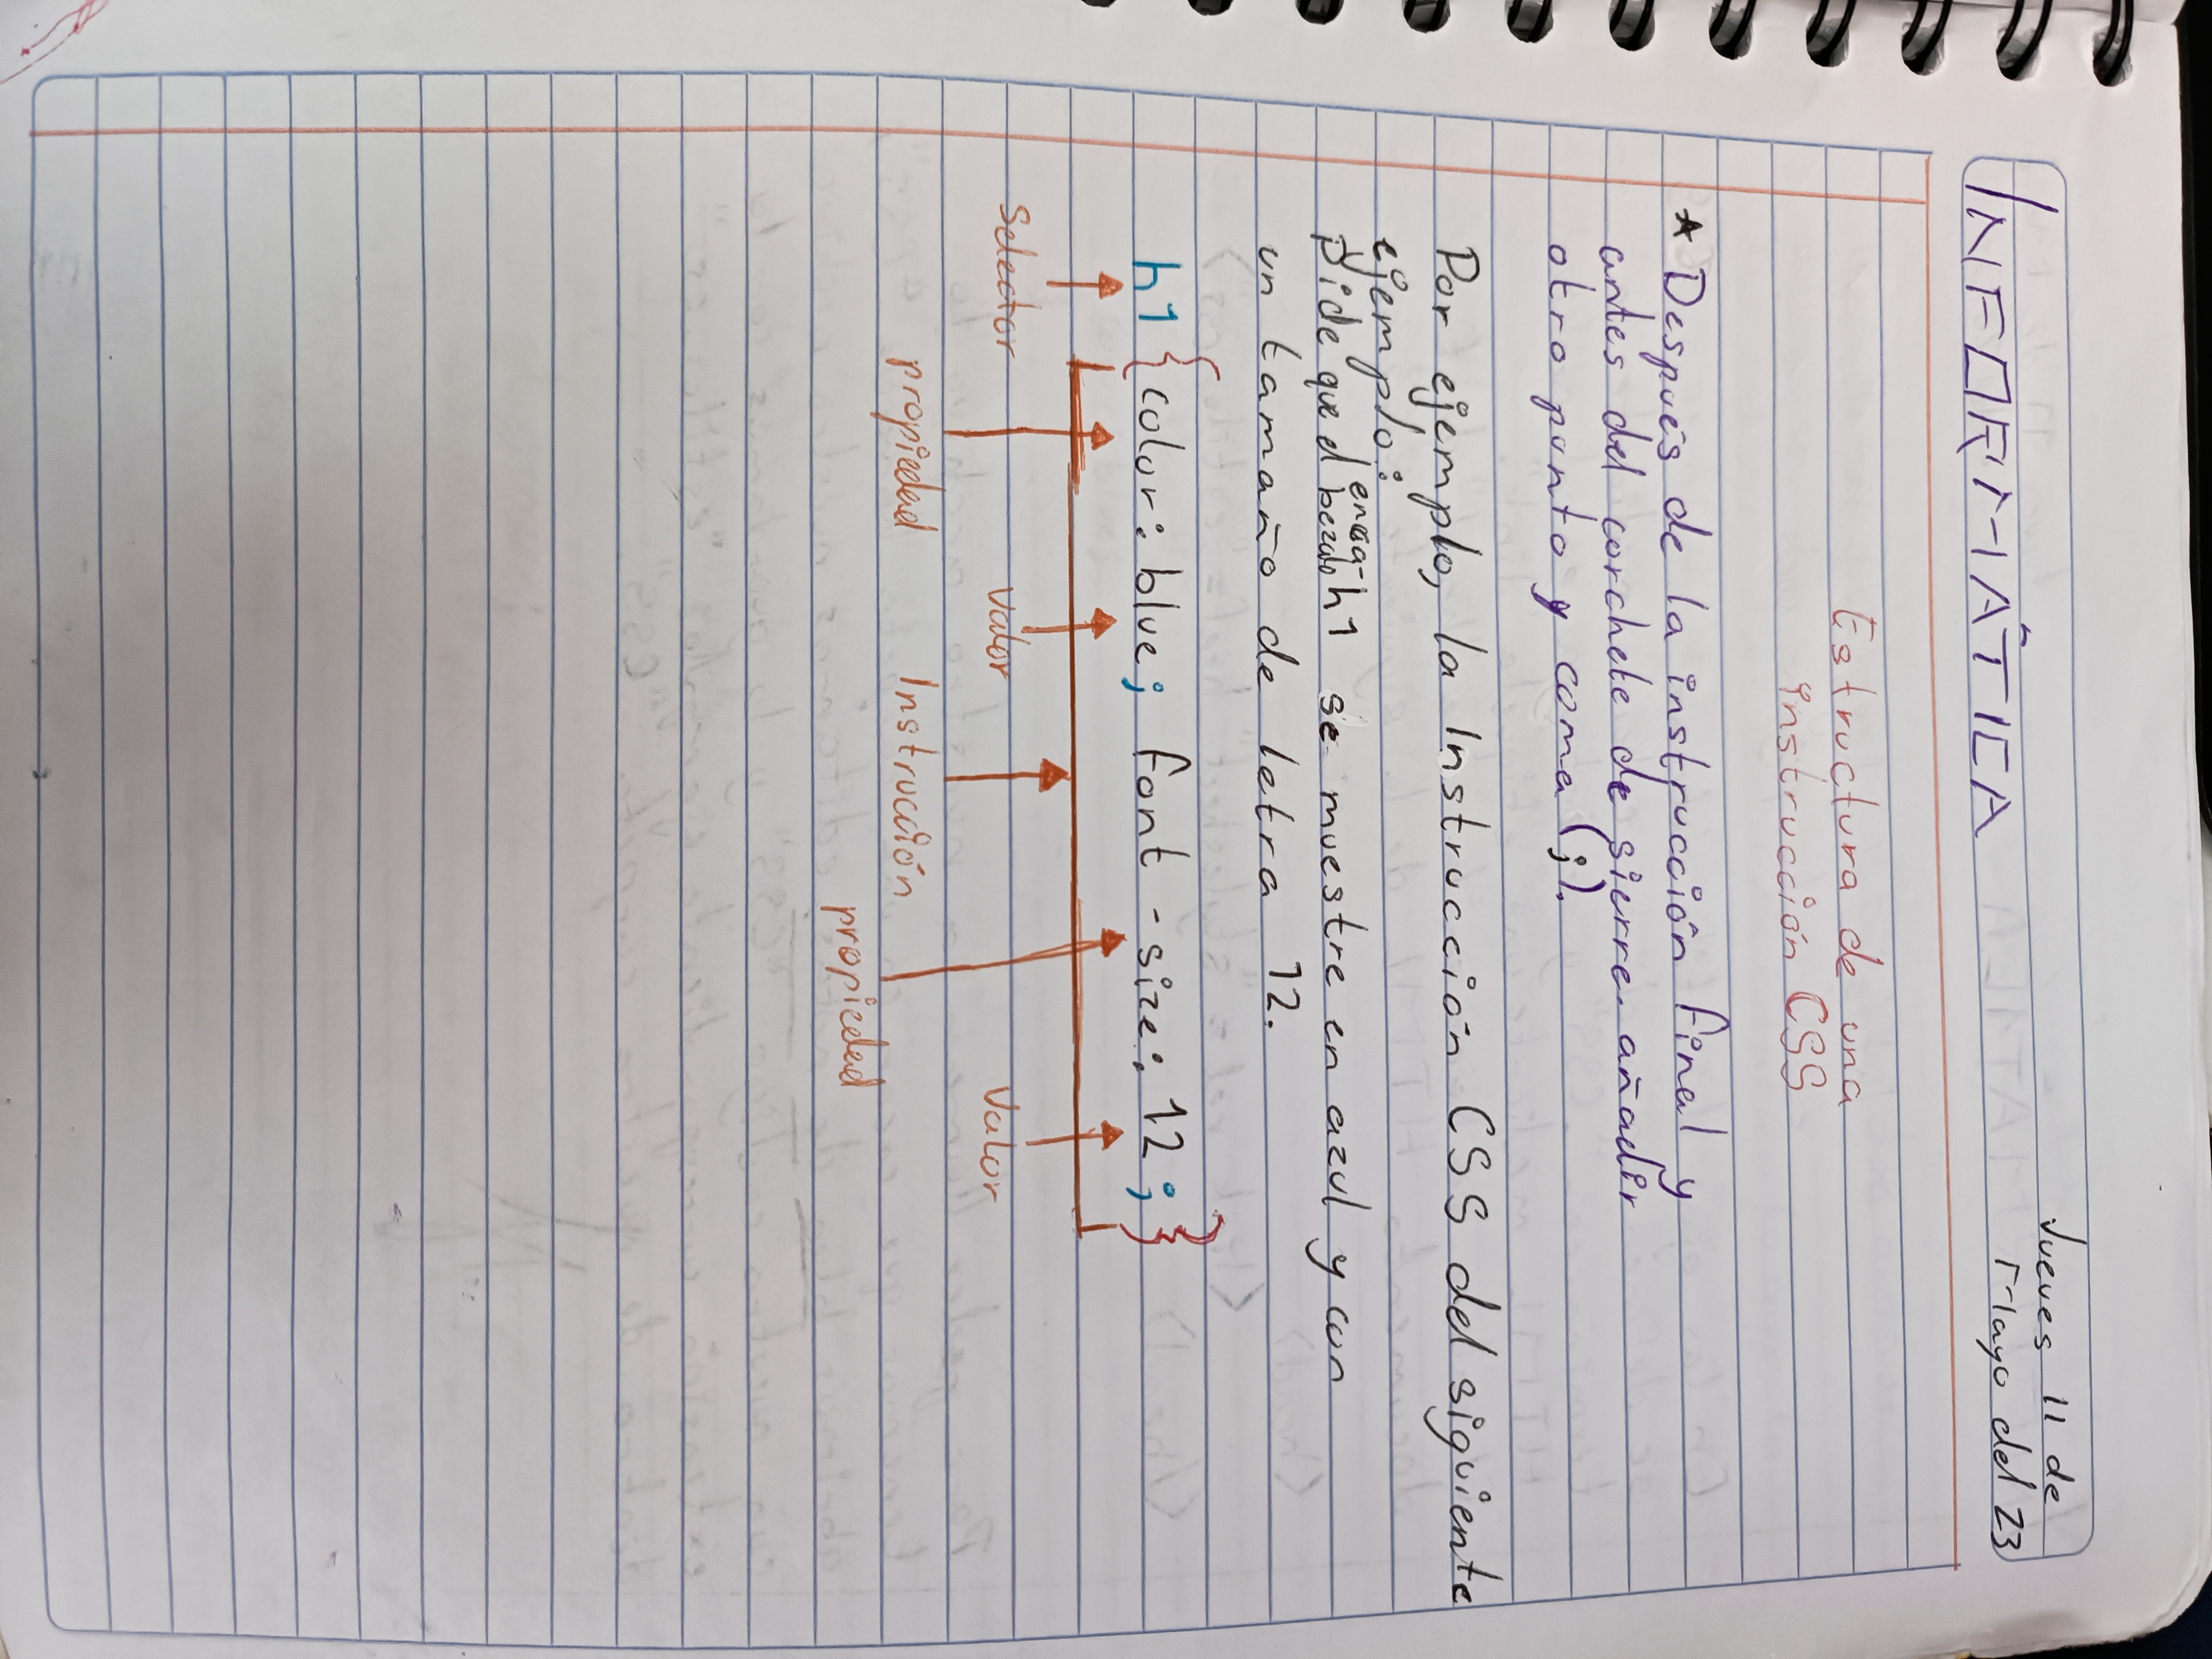 INFORMÁTICA
Jueves 11 de
Mayo del 23
Estructura de una
instrucción CSS
* Después de la instrucción final y
antes del corchete de sierre añadir
otro punto y coma (;).
Por ejemplo, la Instrucción CSS del siguiente
ejemplo:
pide que el encabezado h1 se muestre en azul y con
un tamaño de letra 12.
h1 {color: blue; font-size: 12;}
Selector Valor Valor
propiedad Instrucción
propiedad